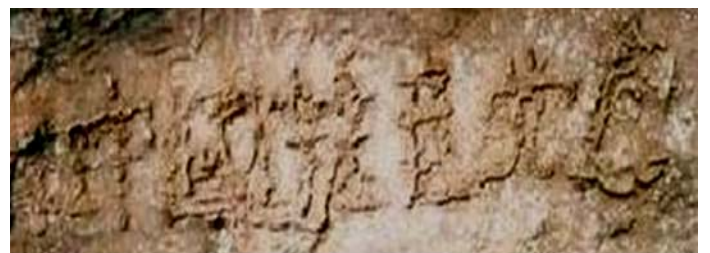 中國共產黨亡